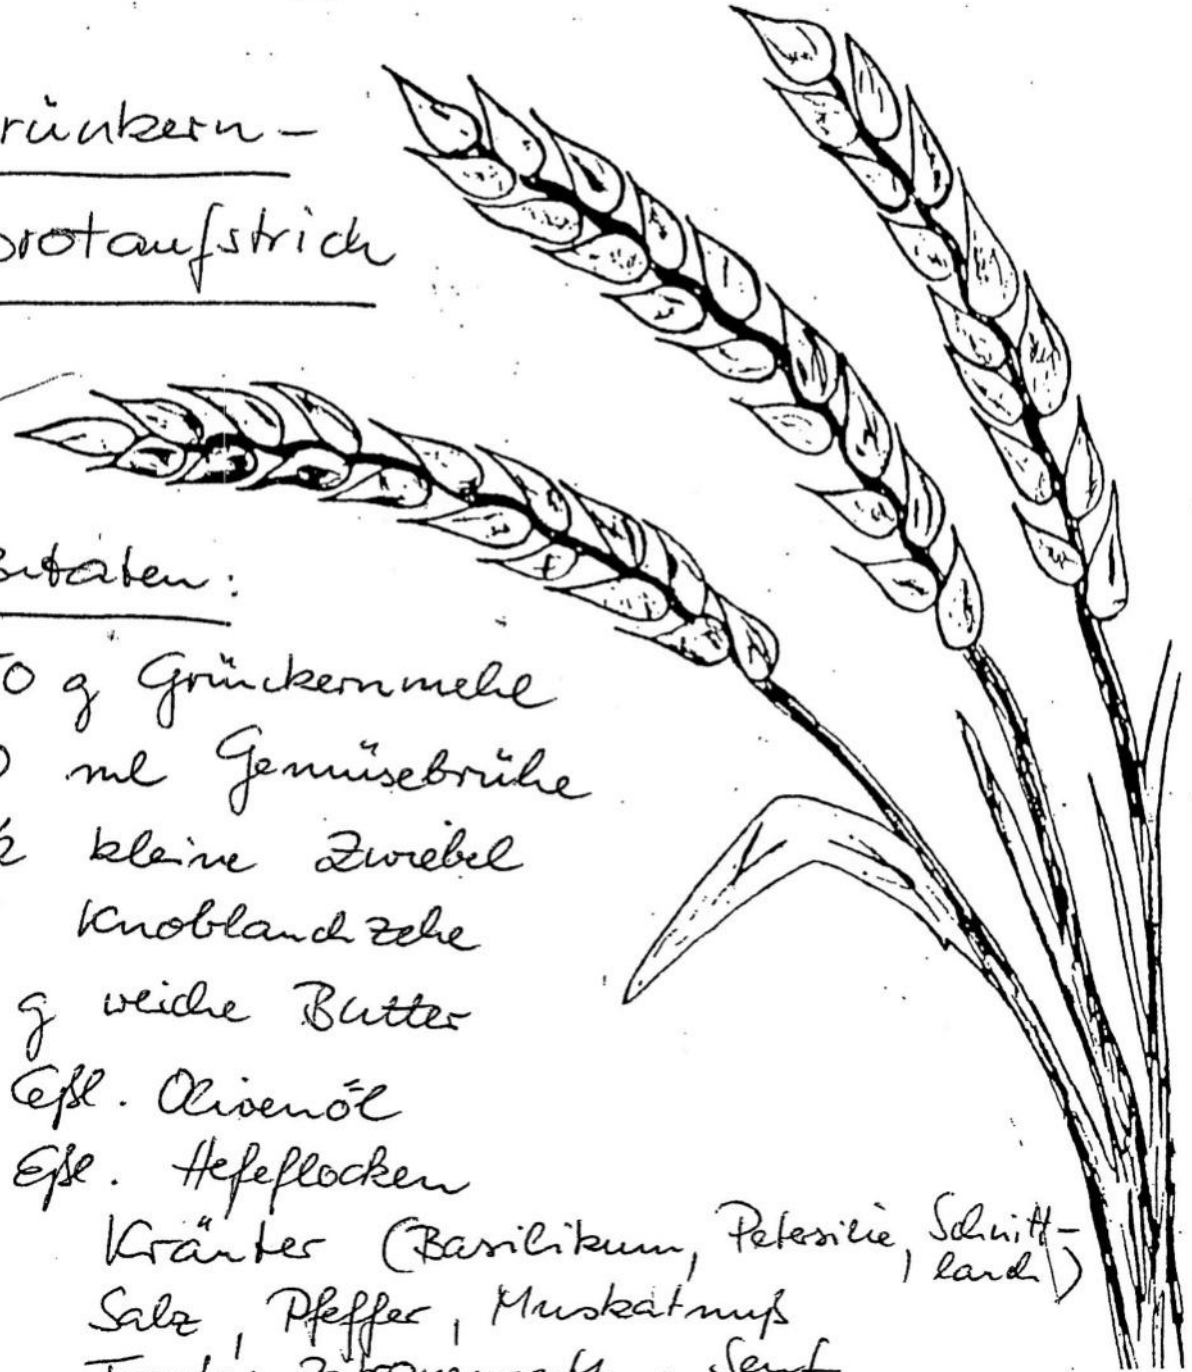 rünkern-
brotaufstrich
utaten:
0 g Grünckernmehl
0 ml Gemüsebrühe
kleine Zwiebel
Knoblauchzehe
g weiche Butter
Eßl. Olivenöl
Eßl. Hefeflocken
Kräuter (Basilikum, Petersilie, Schnitt-
lauch)
Salz, Pfeffer, Muskatnuß
Senf